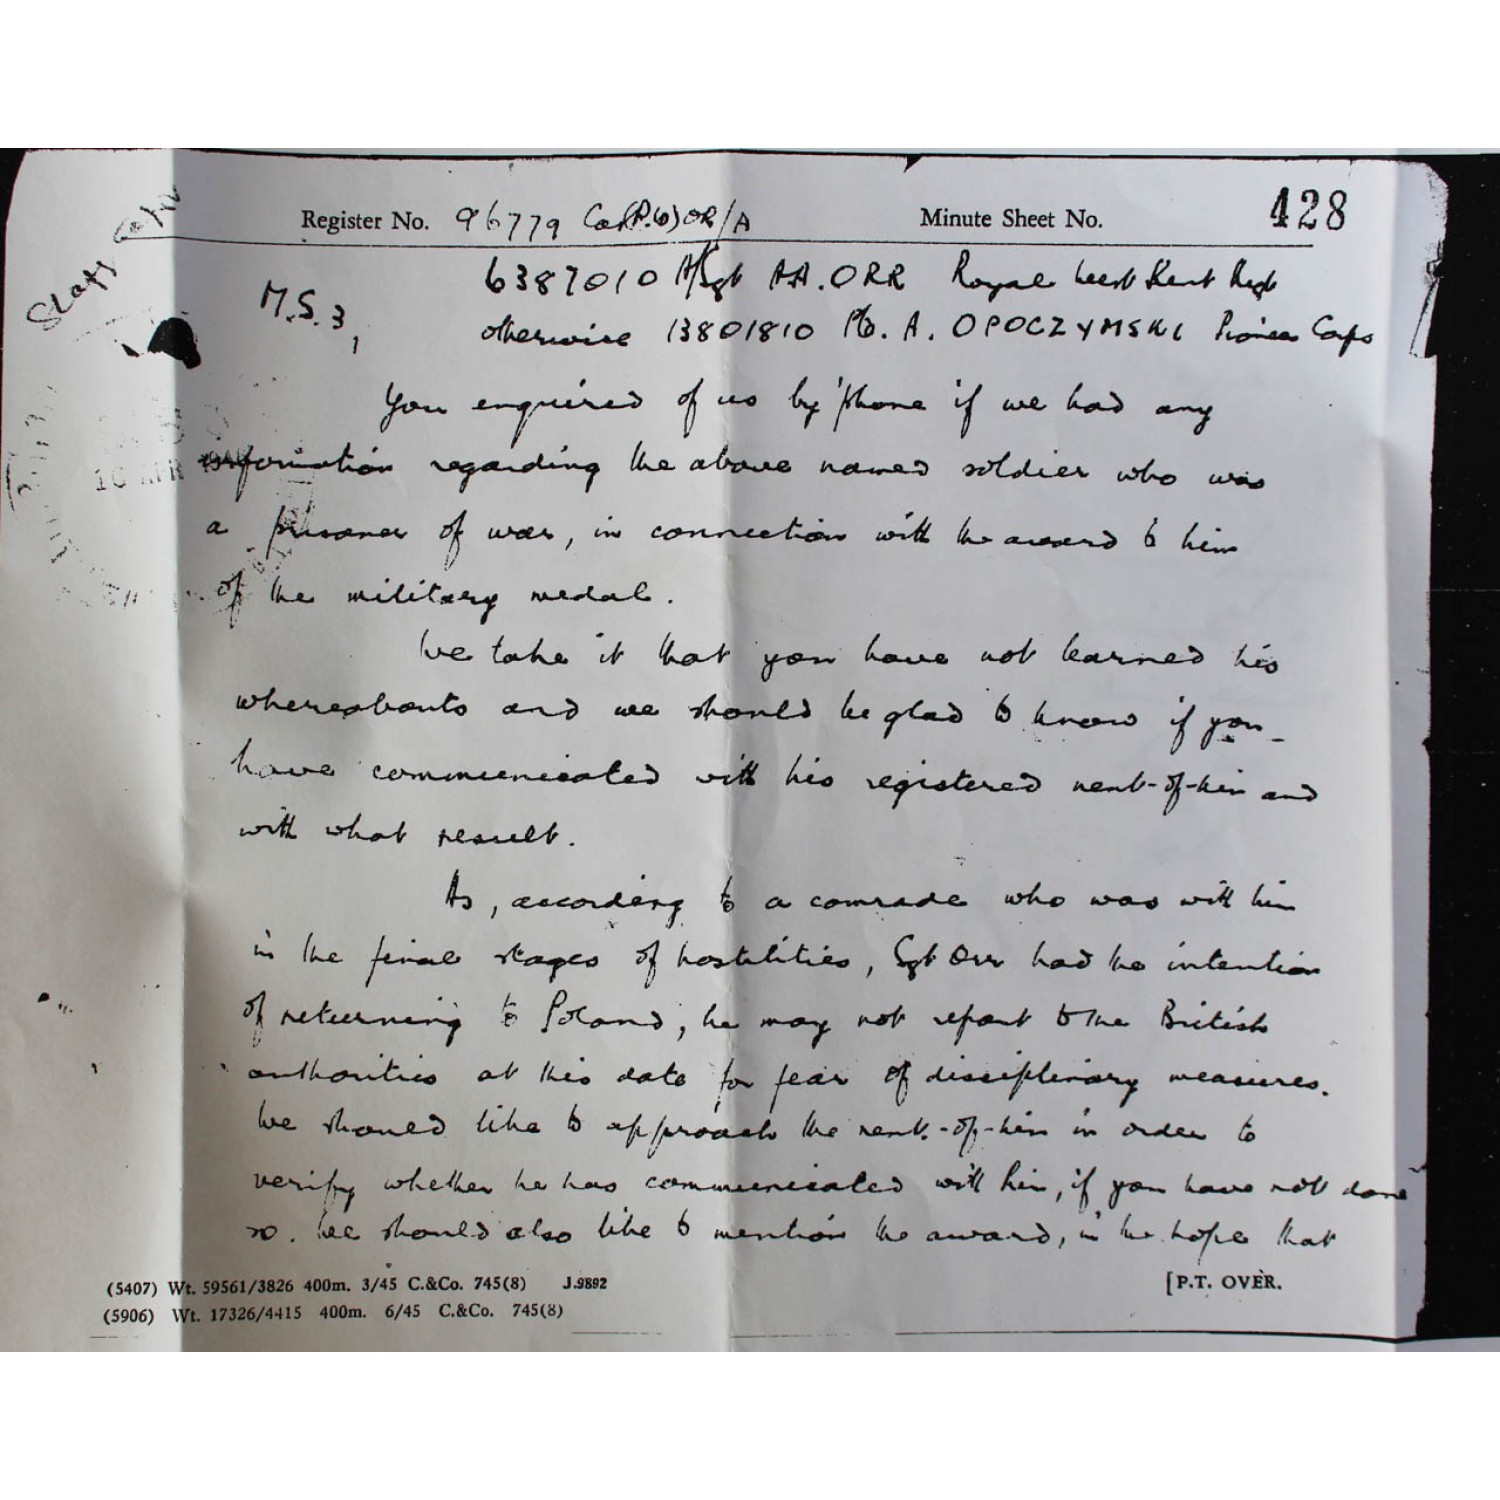 Register No. 96779 Cas(P.W)OR/A Minute Sheet No. 428
6387010 A/Sgt A.A. ORR Royal West Kent Regt
M.S.3, otherwise 13801810 Pte. A. OPOCZYNSKI Pioneer Corps
You enquired of us by 'phone if we had any
information regarding the above named soldier who was
a prisoner of war, in connection with the award to him
of the military medal.
We take it that you have not learned his
whereabouts and we should be glad to know if you
have communicated with his registered next-of-kin and
with what result.
As, according to a comrade who was with him
in the final stages of hostilities, Sgt Orr had the intention
of returning to Poland, he may not report to the British
authorities at this date for fear of disciplinary measures.
We should like to approach the next-of-kin in order to
verify whether he has communicated with him, if you have not done
so. We should also like to mention the award, in the hope that
(5407) Wt. 59561/3826 400m. 3/45 C.&Co. 745(8) J.9892 [P.T. OVER.
(5906) Wt. 17326/4415 400m. 6/45 C.&Co. 745(8)